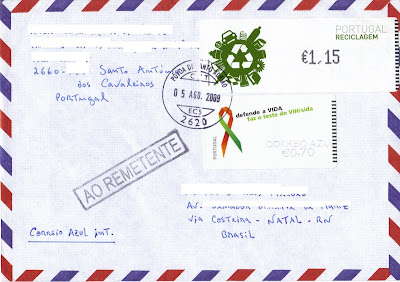 PORTUGAL
RECICLAGEM
€1,15
2660- Santo António
dos Cavaleiros
Portugal
PÓVOA DE SANTO
05 AGO. 2009
2620
defende a VIDA
faz o teste do VIH/sida
PORTUGAL
CORREIO AZUL
€0,70
AO REMETENTE
AV.
Via Costeira - NATAL - RN
Brasil
Correio Azul int.